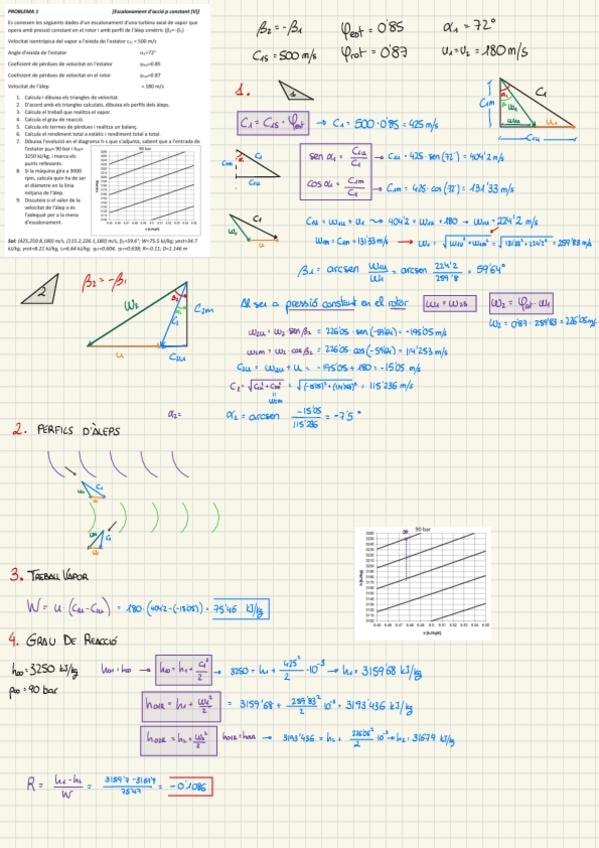 PROBLEMA 1 [Escalonament d'acció p constant (VI)]
Es coneixen les següents dades d'un escalonament d'una turbina axial de vapor que
opera amb pressió constant en el rotor i amb perfil de l'àlep simètric (β₂=-β₁)
Velocitat isentròpica del vapor a l'eixida de l'estator c₁s = 500 m/s
Angle d'eixida de l'estator α₁=72°
Coeficient de pèrdues de velocitat en l'estator φest=0.85
Coeficient de pèrdues de velocitat en el rotor φrot=0.87
Velocitat de l'àlep = 180 m/s
1. Calcula i dibuixa els triangles de velocitat.
2. D'acord amb els triangles calculats, dibuixa els perfils dels àleps.
3. Calcula el treball que realitza el vapor.
4. Calcula el grau de reacció.
5. Calcula els termes de pèrdues i realitza un balanç.
6. Calcula el rendiment total a estàtic i rendiment total a total.
7. Dibuixa l'evolució en el diagrama h-s que s'adjunta, sabent que a l'entrada de
l'estator p₀₀= 90 bar i h₀₀=
3250 kJ/kg, i marca els
punts rellevants.
8. Si la màquina gira a 3000
rpm, calcula quin ha de ser
el diàmetre en la línia
mitjana de l'àlep.
9. Discuteix si el valor de la
velocitat de l'àlep o és
l'adequat per a la mena
d'escalonament.
90 bar
β₂ = -β₁ φest = 0'85 α₁ = 72°
C₁s = 500 m/s φrot = 0'87 u₁ = u₂ = 180 m/s
1.
C₁ = C₁s · φest → C₁ = 500 · 0'85 = 425 m/s
sen α₁ = C₁u/C₁ → C₁u = 425 · sen(72°) = 404'2 m/s
cos α₁ = C₁m/C₁ → C₁m = 425 · cos(72°) = 131'33 m/s
C₁u = w₁u + u₁ → 404'2 = w₁u + 180 → w₁u = 224'2 m/s
w₁m = C₁m = 131'33 m/s → w₁ = √(w₁u² + w₁m²) = √(131'33² + 224'2²) = 259'83 m/s
β₁ = arcsen w₁u/w₁ = arcsen 224'2/259'8 = 59'64°
2
β₂ = -β₁
Al ser a pressió constant en el rotor w₁ = w₂s w₂ = φrot · w₁
w₂ = 0'87 · 259'83 = 226'05 m/s
w₂u = w₂ · sen β₂ = 226'05 · sen(-59'64) = -195'05 m/s
w₂m = w₂ · cos β₂ = 226'05 · cos(-59'64) = 114'253 m/s
C₂u = w₂u + u = -195'05 + 180 = -15'05 m/s
C₂ = √(C₂u² + C₂m²) = √((-15'05)² + (114'25)²) = 115'236 m/s
α₂ = α₂ = arcsen -15'05/115'236 = -7'5°
2. PERFILS D'ÀLEPS
90 bar
3. TREBALL VAPOR
W = u · (C₁u - C₂u) = 180 · (404'2 - (-15'05)) = 75'46 kJ/kg
4. GRAU DE REACCIÓ
h₀₀ = 3250 kJ/kg h₀₁ = h₀₀ → h₀₀ = h₁ + C₁²/2 → 3250 = h₁ + 425²/2 · 10⁻³ → h₁ = 3159'68 kJ/kg
p₀₀ = 90 bar
h₀₁R = h₁ + w₁²/2 = 3159'68 + 259'83²/2 · 10⁻³ = 3193'436 kJ/kg
h₀₂R = h₂ + w₂²/2 h₀₁R = h₀₂R → 3193'436 = h₂ + 226'05²/2 · 10⁻³ → h₂ = 3167'9 kJ/kg
R = h₁ - h₂/W = 3159'7 - 3167'9/75'47 = -0'1086